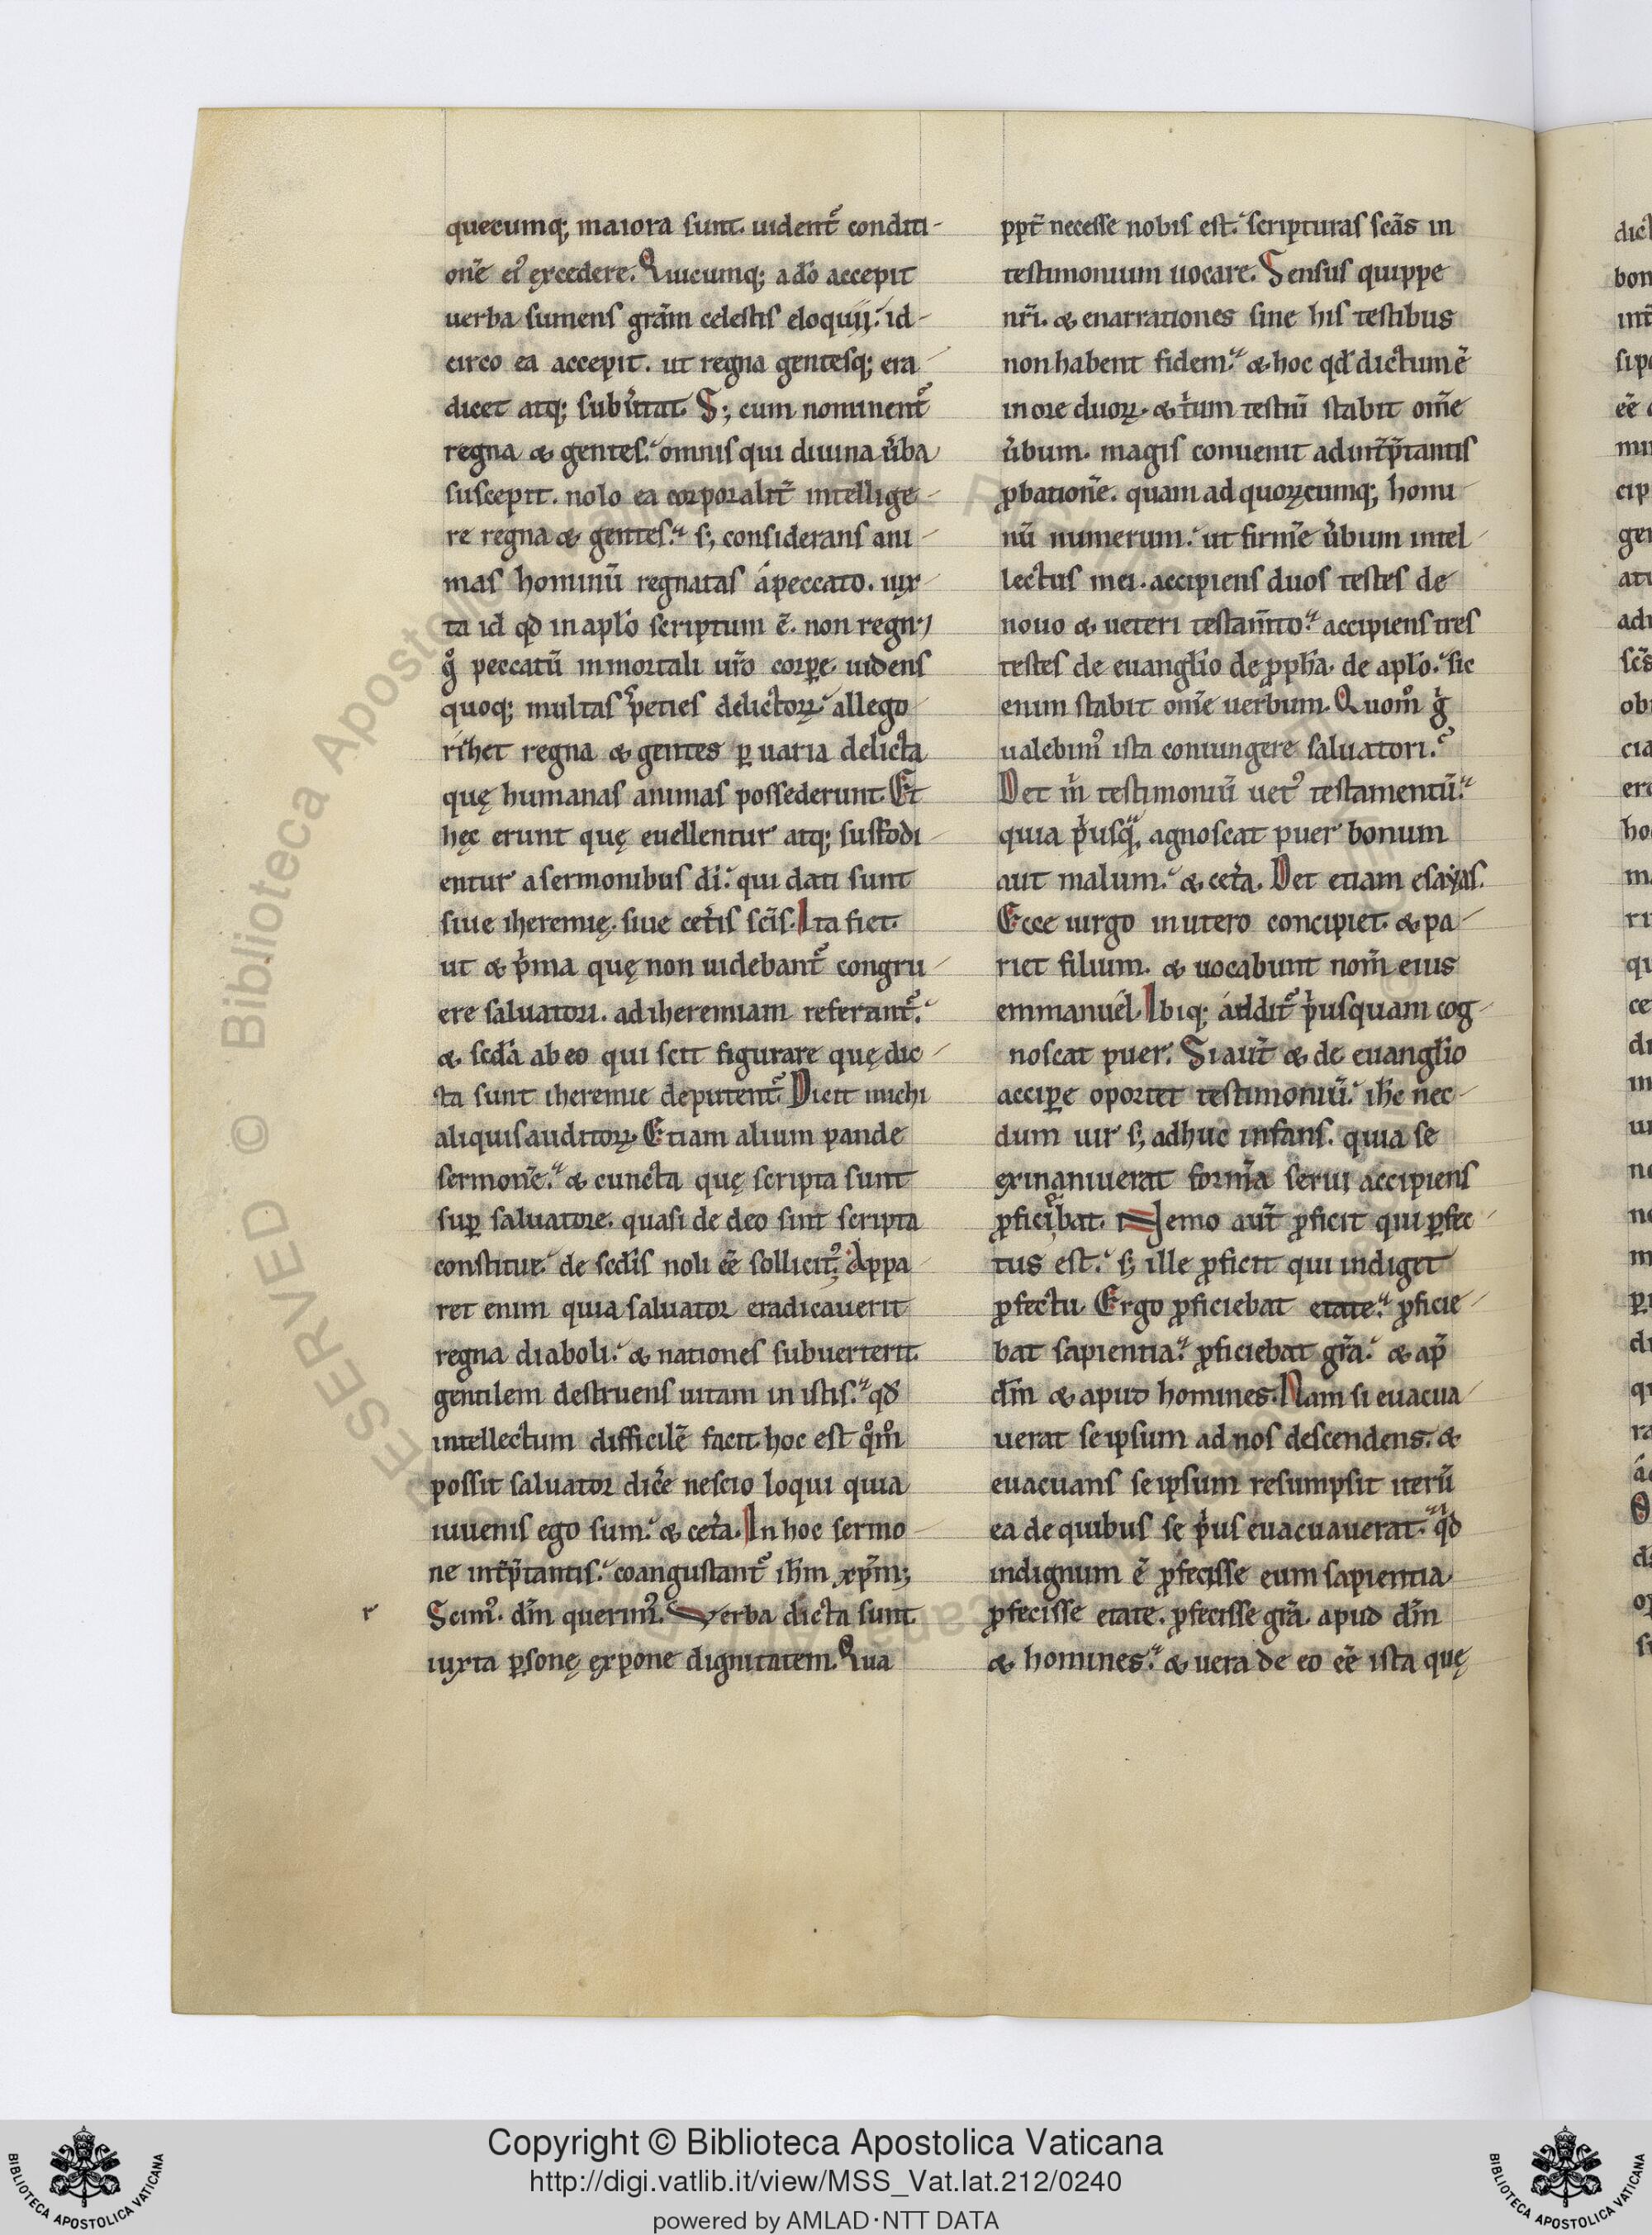 quecumq; maiora sunt. uident᷑ conditi-
onē eiꝰ excedere. Quicumq; a do̅ accepit
uerba sumens gr̅am celestis eloquij. id-
circo ea accepit. ut regna gentesq; era-
dicet atq; subu̾tat. S; cum nominent᷑
regna & gentes. omnis qui diuina u̾ba
suscepit. nolo ea corporalit̅ intellige-
re regna & gentes. s; considerans ani-
mas hominū regnatas á peccato. iux-
ta id qd̅ in aplo̅ scriptum ē. non regn;
g̊ peccatū in mortali ur̅o corꝑe. uidens
quoq; multas speties delictoꝝ. allego
rihet regna & gentes ꝑ uaria delicta
quę humanas animas possederunt. Et
hęc erunt quę euellentur atq; suffodi-
entur a sermonibus di̅. qui dati sunt
siue iheremię. siue cet̾is sci̅s. Ita fiet.
ut & pͥma quę non uidebant᷑ congru-
ere saluatori. ad iheremiam referant᷑.
& sc̅da ab eo qui scit figurare quę dic-
ta sunt iheremie deputent᷑. Dicit michi
aliquis auditoꝝ. Etiam alium pande
sermonē. & cuncta quę scripta sunt
suꝑ saluatore. quasi de deo sint scripta
constitue. de sc̅dis noli ēe sollicitꝰ. Appa
ret enim quia saluator eradicauerit
regna diaboli. & nationes subuerterit.
gentilem destruens uitam in istis. qd̅
intellectum difficilē facit. hoc est qͦmͦ
possit saluator dic̾e nescio loqui quia
iuuenis ego sum. & cet̾a. In hoc sermo-
ne int̅p̅tantis. coangustant᷑ ih̅m xp̅m;
r Scimꝰ. dn̅m querimꝰ. Verba dicta sunt.
iuxta ꝑsonę expone dignitatem. Qua
ppt̅ necesse nobis est. scripturas sc̅as in
testimonium uocare. Sensus quippe
nr̅i. & enarrationes sine his testibus
non habent fidem. & hoc qd̅ dictum ē
in ore duoꝝ. & tͥum testiū stabit om̅e
u̾bum. magis conuenit ad int̅p̅tantis
ꝓbationē. quam ad quoꝝcumq; homi-
nū numerum. ut firmē u̾bum intel-
lectus mei. accipiens duos testes de
nouo & ueteri testam̅to. accipiens tres
testes de euangl̅io de ꝓph̅a. de aplo̅. sic
enim stabit om̅e uerbum. Quomͦ gͥ
ualebimꝰ ista coniungere saluatori.
Det mͥ testimoniū uetꝰ testamentū.
quia pͥusqᷓ, agnoscat puer bonum
aut malum. & cet̾a. Det etiam esaẏas.
Ecce uirgo in utero concipiet. & pa-
riet filium. & uocabunt nom̅ eius
emmanuél. Ibiq; additͬ pͥusquam cog-
noscat puer. Si aut̅ & de euangl̅io
acciꝑe oportet testimoniū. ih̅c nec-
dum uir s; adhuc infans. quia se
exinaniuerat form̅a serui accipiens
ꝓficiebat. Nemo aut̅ ꝓficit qui ꝑfec-
tus est. s; ille ꝓficit qui indiget
ꝓfectu. Ergo ꝓficiebat etate. ꝓficie-
bat sapientia. ꝓficiebat gr̅a. & ap̅
dn̅m & apud homines. Nam si euacua-
uerat seipsum ad nos descendens. &
euacuans seipsum resumpsit iterū
ea de quibus se pͥus euacuauerat. qͥd
indignum ē ꝓfecisse eum sapientia.
ꝓfecisse etate. ꝓfecisse gr̅a. apud dn̅m
& homines. & uera de eo ēe ista quę
Copyright © Biblioteca Apostolica Vaticana
http://digi.vatlib.it/view/MSS_Vat.lat.212/0240
powered by AMLAD·NTT DATA